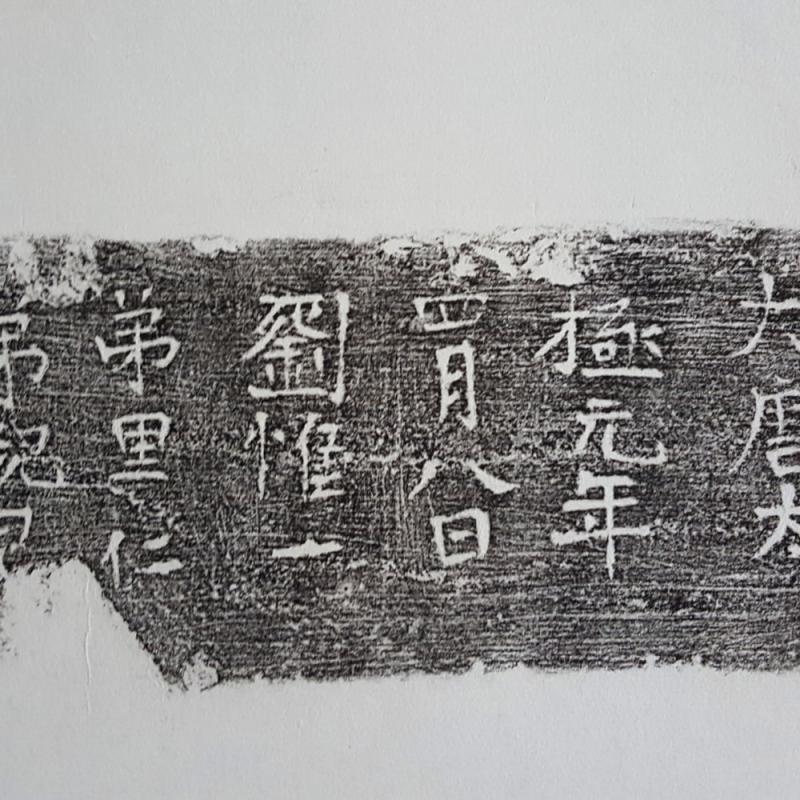 大唐太
極元年
四月八日
劉惟一
弟里仁
弟